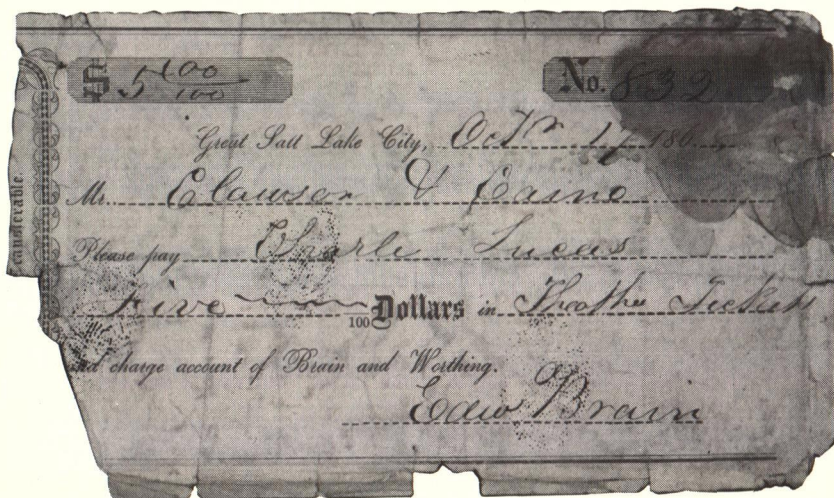 $ 5 00/100 No. 832
Great Salt Lake City, Octr 186
Mr. Clawson & Caine
Please pay Charle Lucas
Five 100 Dollars in Theathe Tickets
nd charge account of Brain and Worthing.
Edw Brain
ansferable.